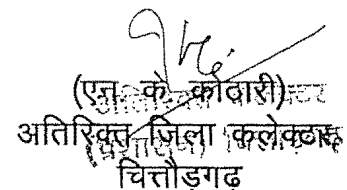 (एन. के. कोठारी)
अतिरिक्त जिला कलेक्टर
चित्तौड़गढ़